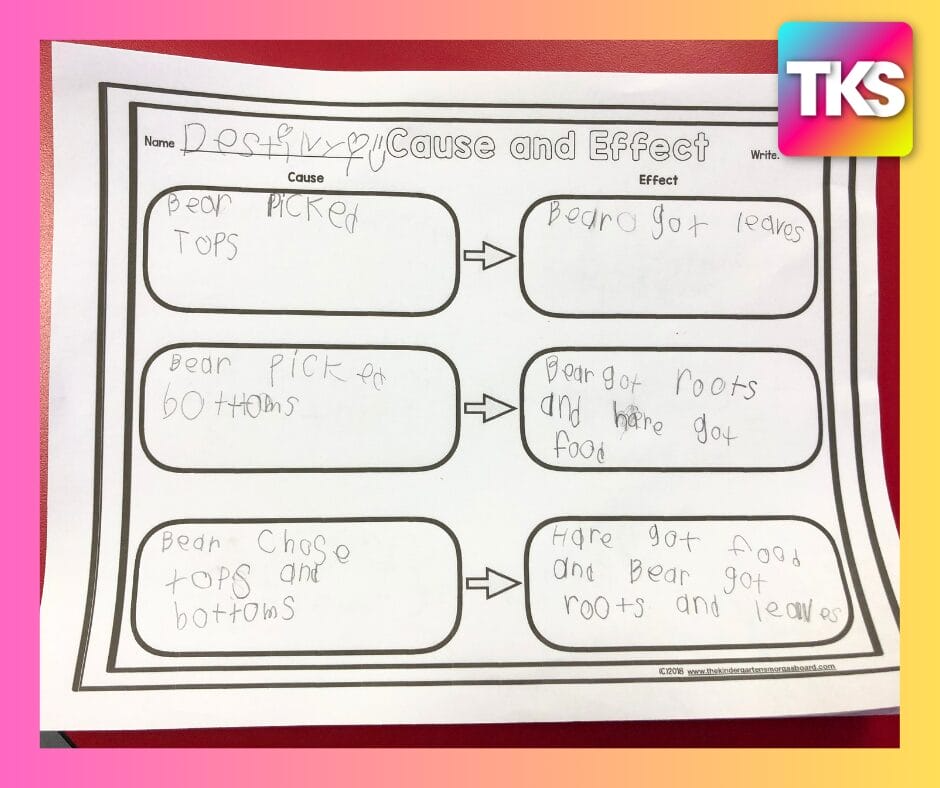 TKS
Name Destiny Cause and Effect Write.
Cause
Effect
Bear Picked
TOPS
Bear got leaves
Bear Picked
bottoms
Bear got roots
and hare got
food
Bear Chose
tops and
bottoms
Hare got food
and Bear got
roots and leaves
(C)2018 www.thekindergartensmorgasboard.com